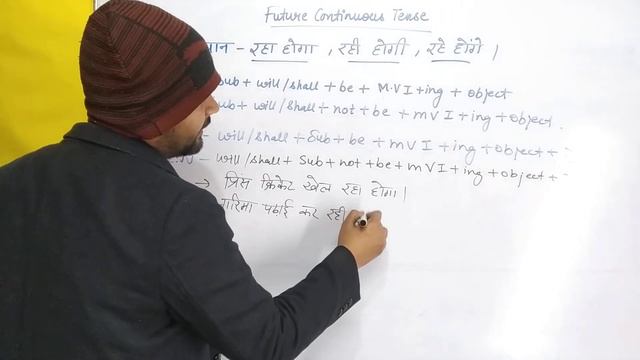 Future Continuous Tense
रहा होगा, रही होगी, रहे होंगे।
Sub + will/shall + be + M.V I + ing + object
Sub + will/shall + not + be + m V I + ing + object.
- will/shall + Sub + be + m V I + ing + object + ?
- will/shall + Sub + not + be + m V I + ing + object + ?
→ प्रिंस क्रिकेट खेल रहा होगा।
गरिमा पढाई कर रही